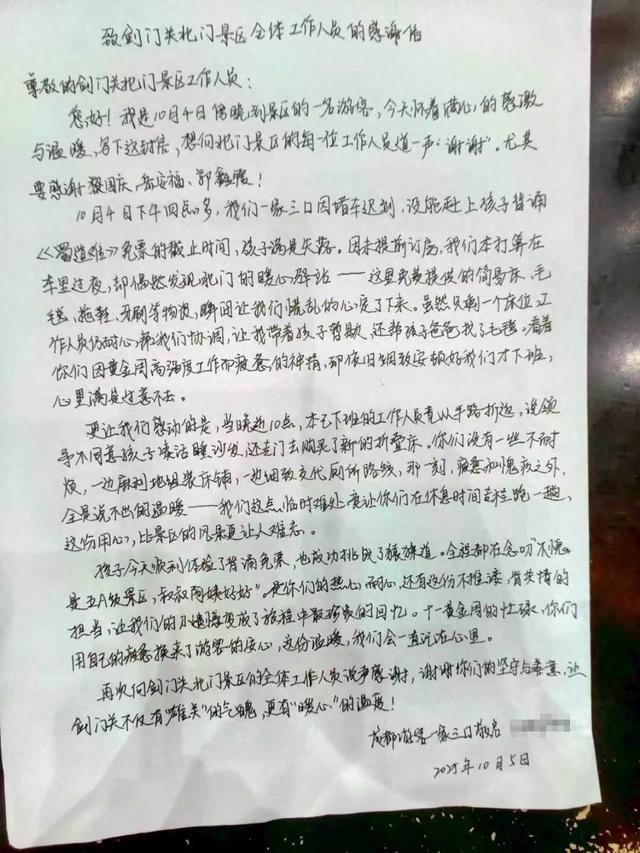 致剑门关北门景区全体工作人员的感谢信
尊敬的剑门关北门景区工作人员：
您好！我是10月4日傍晚到景区的一名游客，今天怀着满心的感激
与温暖，写下这封信，想向北门景区的每一位工作人员道一声“谢谢”。尤其
要感谢 国庆、 安福、郭 ！
10月4日下午四点多，我们一家三口因堵车迟到，没能赶上孩子背诵
《蜀道难》免票的截止时间，孩子满是失落。因未提前订房，我们本打算在
车里过夜，却偶然发现北门的暖心驿站——这里免费提供的简易床、毛
毯、拖鞋、牙刷等物资，瞬间让我们慌乱的心定了下来。虽然只剩一个床位，工
作人员仍耐心帮我们协调，让我带着孩子暂歇，还帮孩子爸爸找了毛毯。看着
你们因黄金周高强度工作而疲惫的神情，却依旧细致安顿好我们才下班，
心里满是过意不去。
更让我们感动的是，当晚近10点，本已下班的工作人员竟从半路折返，说领
导不同意孩子爸爸睡沙发，还专门去购买了新的折叠床。你们没有一丝不耐
烦，一边麻利地组装床铺，一边细致交代厕所路线，那一刻，疲惫和愧疚之外，
全是说不出的温暖——我们这点临时难处，竟让你们在休息时间专程跑一趟，
这份用心，比景区的风景更让人难忘。
孩子今天顺利体验了背诵免票，也成功挑战了猿猱道。全程都在念叨“不愧
是五A级景区，叔叔阿姨好好”。是你们的热心、耐心，还有这份不推诿、有共情的
担当，让我们的小遗憾变成了旅程中最珍贵的回忆。十一黄金周的忙碌，你们
用自己的疲惫换来了游客的安心，这份温暖，我们会一直记在心里。
再次向剑门关北门景区的全体工作人员说声感谢，谢谢你们的坚守与善意，让
剑门关不仅有“雄关”的气魄，更有“暖心”的温度！
成都游客一家三口敬启
2025年10月5日